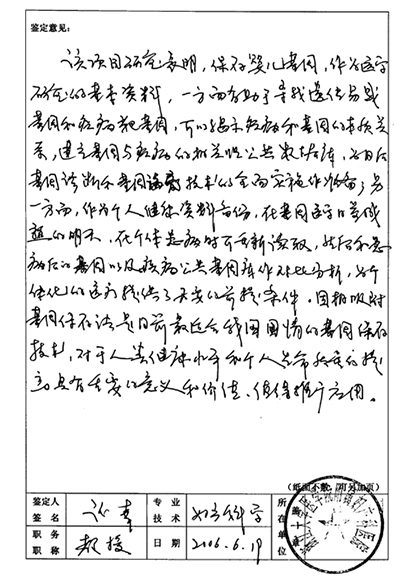 鉴定意见:
该项目研究表明，保存婴儿基因，作为医学
研究的基本资料，一方面有助于寻找遗传易感
基因和疾病靶基因，可以揭示疾病和基因的本质关
系，建立基因与疾病的相关性公共数据库，为日后
基因诊断和基因治疗技术的全面实施作准备；另
一方面，作为个人健康资料备份，在基因医学日益成
熟的明天，在个体患病时可重新读取，然后和患
病后的基因以及疾病公共基因库作对比分析，为个
体化的医疗提供了重要的前提条件。固相吸附
基因保存法是目前最适合我国国情的基因保存
技术，对于人类健康水平和个人生命质量的提
高具有重要的意义和价值，值得推广应用。
(纸面不敷，可另加页)
鉴定人
签名
专业
技术
妇产科学
所在单位
职务
职称
教授
日期
2006.6.19